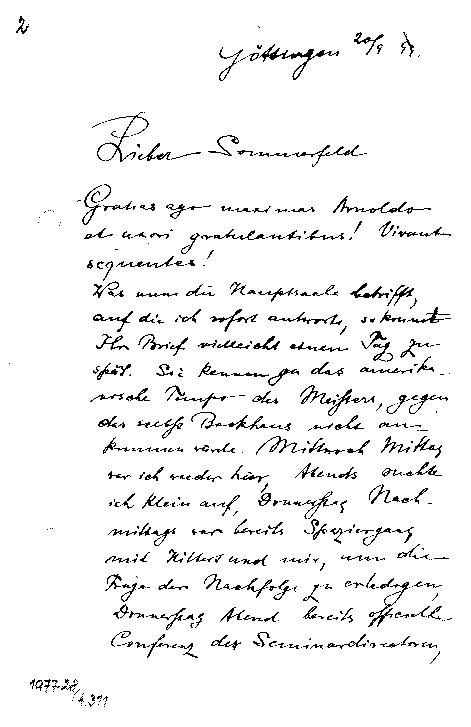 2
Göttingen 20/9 99.
Lieber Sommerfeld
Gratias ago maximas Arnoldo
et uxori gratulantibus! Vivant
sequentes!
Was nun die Hauptsache betrifft,
auf die ich sofort antworte, so kommt
Ihr Brief vielleicht einen Tag zu
spät. Sie kennen ja das amerika-
nische Tempo des Meisters, gegen
das selbst Backhaus nicht an-
kommen würde. Mittwoch Mittag
war ich wieder hier, Abends suchte
ich Klein auf, Donnerstag Nach-
mittags war bereits Spaziergang
mit Hilbert und mir, um die
Frage der Nachfolge zu erledigen,
Donnerstag Abend bereits officielle
Conferenz der Seminardirectoren,
1977-28/A.311